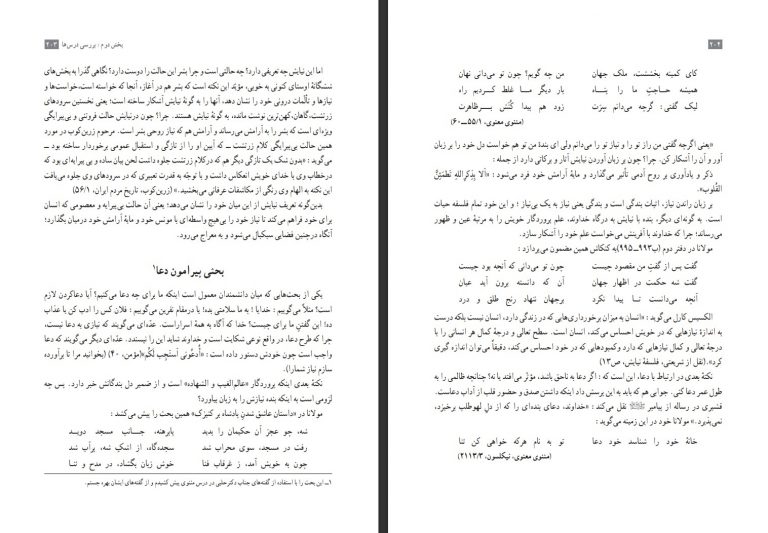 بخش دوم : بررسی درس‌ها ۲۰۳
اما این نیایش چه تعریفی دارد؟ چه حالتی است و چرا بشر این حالت را دوست دارد؟ نگاهی گذرا به بخش‌های
ششگانهٔ اوستای کنونی به خوبی، مؤیّد این نکته است که بشر هم در آغاز، آنجا که خواسته است، خواست‌ها و
نیازها و تألّمات درونی خود را نشان دهد، آنها را به گونهٔ نیایش آشکار ساخته است؛ یعنی نخستین سرودهای
زرتشت، گاهان، کهن‌ترین نوشت مانده، به گونهٔ نیایش هستند. چرا؟ چون درنیایش حالت فروتنی و بی‌پیرایگی
ویژه‌ای است که بشر را به آرامش می‌رساند و آرامش هم که نیاز روحی بشر است. مرحوم زرین‌کوب در مورد
همین حالت بی‌پیرایگی کلام زرتشت ــ که آیین او را از تازگی و استقبال عمومی برخوردار ساخته بود ــ
می‌گوید : «بدون شک یک تازگی دیگر هم که درکلام زرتشت جلوه داشت لحن بیان ساده و بی‌پیرایه‌ای بود که
درخطاب وی با خدای خویش انعکاس داشت و با توجّه به قدرت تعبیری که در سرودهای وی جلوه می‌یافت
این نکته به الهام وی رنگی از مکاشفات عرفانی می‌بخشید.» (زرین‌کوب، تاریخ مردم ایران، ۵۶/۱)
بدین‌گونه تعریف نیایش از این میان خود را نشان می‌دهد؛ یعنی آن حالت بی‌پیرایه و معصومی که انسان
برای خود فراهم می‌کند تا نیاز خود را بی‌هیچ واسطه‌ای با مونس خود و مایهٔ آرامش خود درمیان بگذارد؛
آنگاه درچنین فضایی سبکبال می‌شود و به معراج می‌رود.
بحثی پیرامون دعا۱
یکی از بحث‌هایی که میان دانشمندان معمول است اینکه ما برای چه دعا می‌کنیم؟ آیا دعاکردن لازم
است؟ مثلاً می‌گوییم : خدایا ! به ما سلامتی بده؛ یا درمقام نفرین می‌گوییم : فلان کس را ادب کن یا عذاب
ده؛ این گفتنِ ما برای چیست؟ خدا که آگاه به همهٔ اسراراست. عدّه‌ای می‌گویند که نیازی به دعا نیست،
چرا که طرح دعا، در واقع نوعی شکایت است و خداوند شاید این را نپسندد. عدّه‌ای دیگر می‌گویند که دعا
واجب است چون خودش دستور داده است : «اُدعُونی اَستَجِب لَکُم»(مؤمن، ۴۰) (بخوانید مرا تا برآورده
سازم نیاز شمارا).
نکتهٔ بعدی اینکه پروردگار «عالم‌الغیب و الشهاده» است و از ضمیر دل بندگانش خبر دارد. پس چه
لزومی است به اینکه بنده نیازش را به زبان بیاورد؟
مولانا در «داستان عاشق شدنِ پادشاه بر کنیزک» همین بحث را پیش می‌کشد :
شه، چو عجز آن حکیمان را بدید پابرهنه، جانب مسجد دوید
رفت در مسجد، سوی محراب شد سجده‌گاه، از اشکِ شه، پرآب شد
چون به خویش آمد، ز غرقاب فنا خوش زبان بگشاد، در مدح و ثنا
۱ــ این بحث را با استفاده از گفته‌های جناب دکترحلبی در درس مثنوی پیش کشیدم و از گفته‌های ایشان بهره جستم.
۲۰۴
کای کمینه بخششت، ملک جهان من چه گویم؟ چون تو می‌دانی نهان
همیشه حاجتِ ما را پناه بار دیگر ما غلط کردیم راه
لیک گفتی : گرچه می‌دانم سِرَت زود هم پیدا کُنَش بر ظاهرت
(مثنوی معنوی، ۵۵/۱ــ۶۰)
«یعنی اگرچه گفتی من راز تو را و نیاز تو را می‌دانم ولی ای بندهٔ من تو هم خواست دل خود را بر زبان
آور و آن را آشکار کن. چرا؟ چون بر زبان آوردن نیایش آثار و برکاتی دارد از جمله :
ذکر و یادآوری بر روح آدمی تأثیر می‌گذارد و مایهٔ آرامش خود فرد می‌شود : «اَلا بِذِکرِاللهِ تَطمَئِنُّ
القُلُوب»
بر زبان راندن نیاز، اثبات بندگی است و بندگی یعنی نیاز به یک بی‌نیاز؛ و این خود تمام فلسفه حیات
است. به گونه‌ای دیگر، بنده با نیایش به درگاه خداوند، علم پروردگار خویش را به مرتبهٔ عین و ظهور
می‌رساند؛ چرا که خداوند با آفرینش می‌خواست علم خود را آشکار سازد.
مولانا در دفتر دوم (ب۹۹۳ــ۹۹۵)به کنکاش همین مضمون می‌پردازد :
گفت پس از گفتِ من مقصود چیست چون تو می‌دانی که آنچه بود چیست
گفت شه حکمت در اظهار جهان آن که دانسته برون آید عیان
آنچه می‌دانست تا پیدا نکرد برجهان ننهاد رنج طلق و درد
الکسیس کارل می‌گوید : «انسان به میزان برخورداری‌هایی که در زندگی دارد، انسان نیست بلکه درست
به اندازهٔ نیازهایی که در خویش احساس می‌کند، انسان است. سطح تعالی و درجهٔ کمال هر انسانی را با
درجهٔ تعالی و کمال نیازهایی که دارد وکمبودهایی که در خود احساس می‌کند، دقیقاً می‌توان اندازه گیری
کرد».(نقل از شریعتی، فلسفهٔ نیایش، ص۱۳)
نکتهٔ بعدی در ارتباط با دعا، این است که : اگر دعا به ناحق باشد، مؤثّر می‌افتد یا نه؟ چنانچه ظالمی را به
طول عمر دعا کنی. جوابی هم که باید به این پرسش داد اینکه داشتن صدق و حضور قلب از آداب دعاست.
قشیری در رساله از پیامبر ﷺ نقل می‌کند : «خداوند، دعای بنده‌ای را که از دل لهوطلب برخیزد،
نمی‌پذیرد.» مولانا خود در این زمینه می‌گوید :
خانهٔ خود را شناسد خود دعا تو به نام هرکه خواهی کن ثنا
(مثنوی معنوی، نیکلسون، ۲۱۱۳/۳)